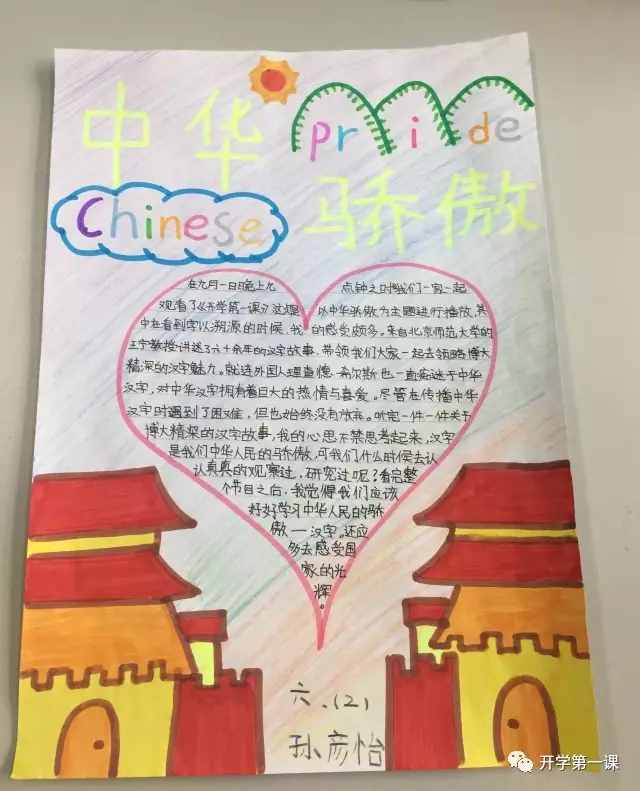 中华
pride
Chinese
骄傲
在九月一日晚上九 点钟之时我们一家一起
观看了《开学第一课》这课 以中华骄傲为主题进行播放,其
中在看到字以溯源的时候,我 的感受颇多。来自北京师范大学的
王宁教授讲述了六十余年的汉字故事,带领我们大家一起去领略博大
精深的汉字魅力。就连外国人理查德·希尔斯也一直痴迷于中华
汉字,对中华汉字拥有着巨大的热情与喜爱。尽管在传播中华
汉字时遇到了困难,但也始终没有放弃。听完一件一件关于
博大精深的汉字故事,我的心思不禁思考起来,汉字
是我们中华人民的骄傲,可我们什么时候去认
认真真的观察过,研究过呢?看完整
个节目之后,我觉得我们应该
好好学习中华人民的骄
傲——汉字。还应
多去感受国
家的光
辉。
六.(2)
孙彦怡
开学第一课